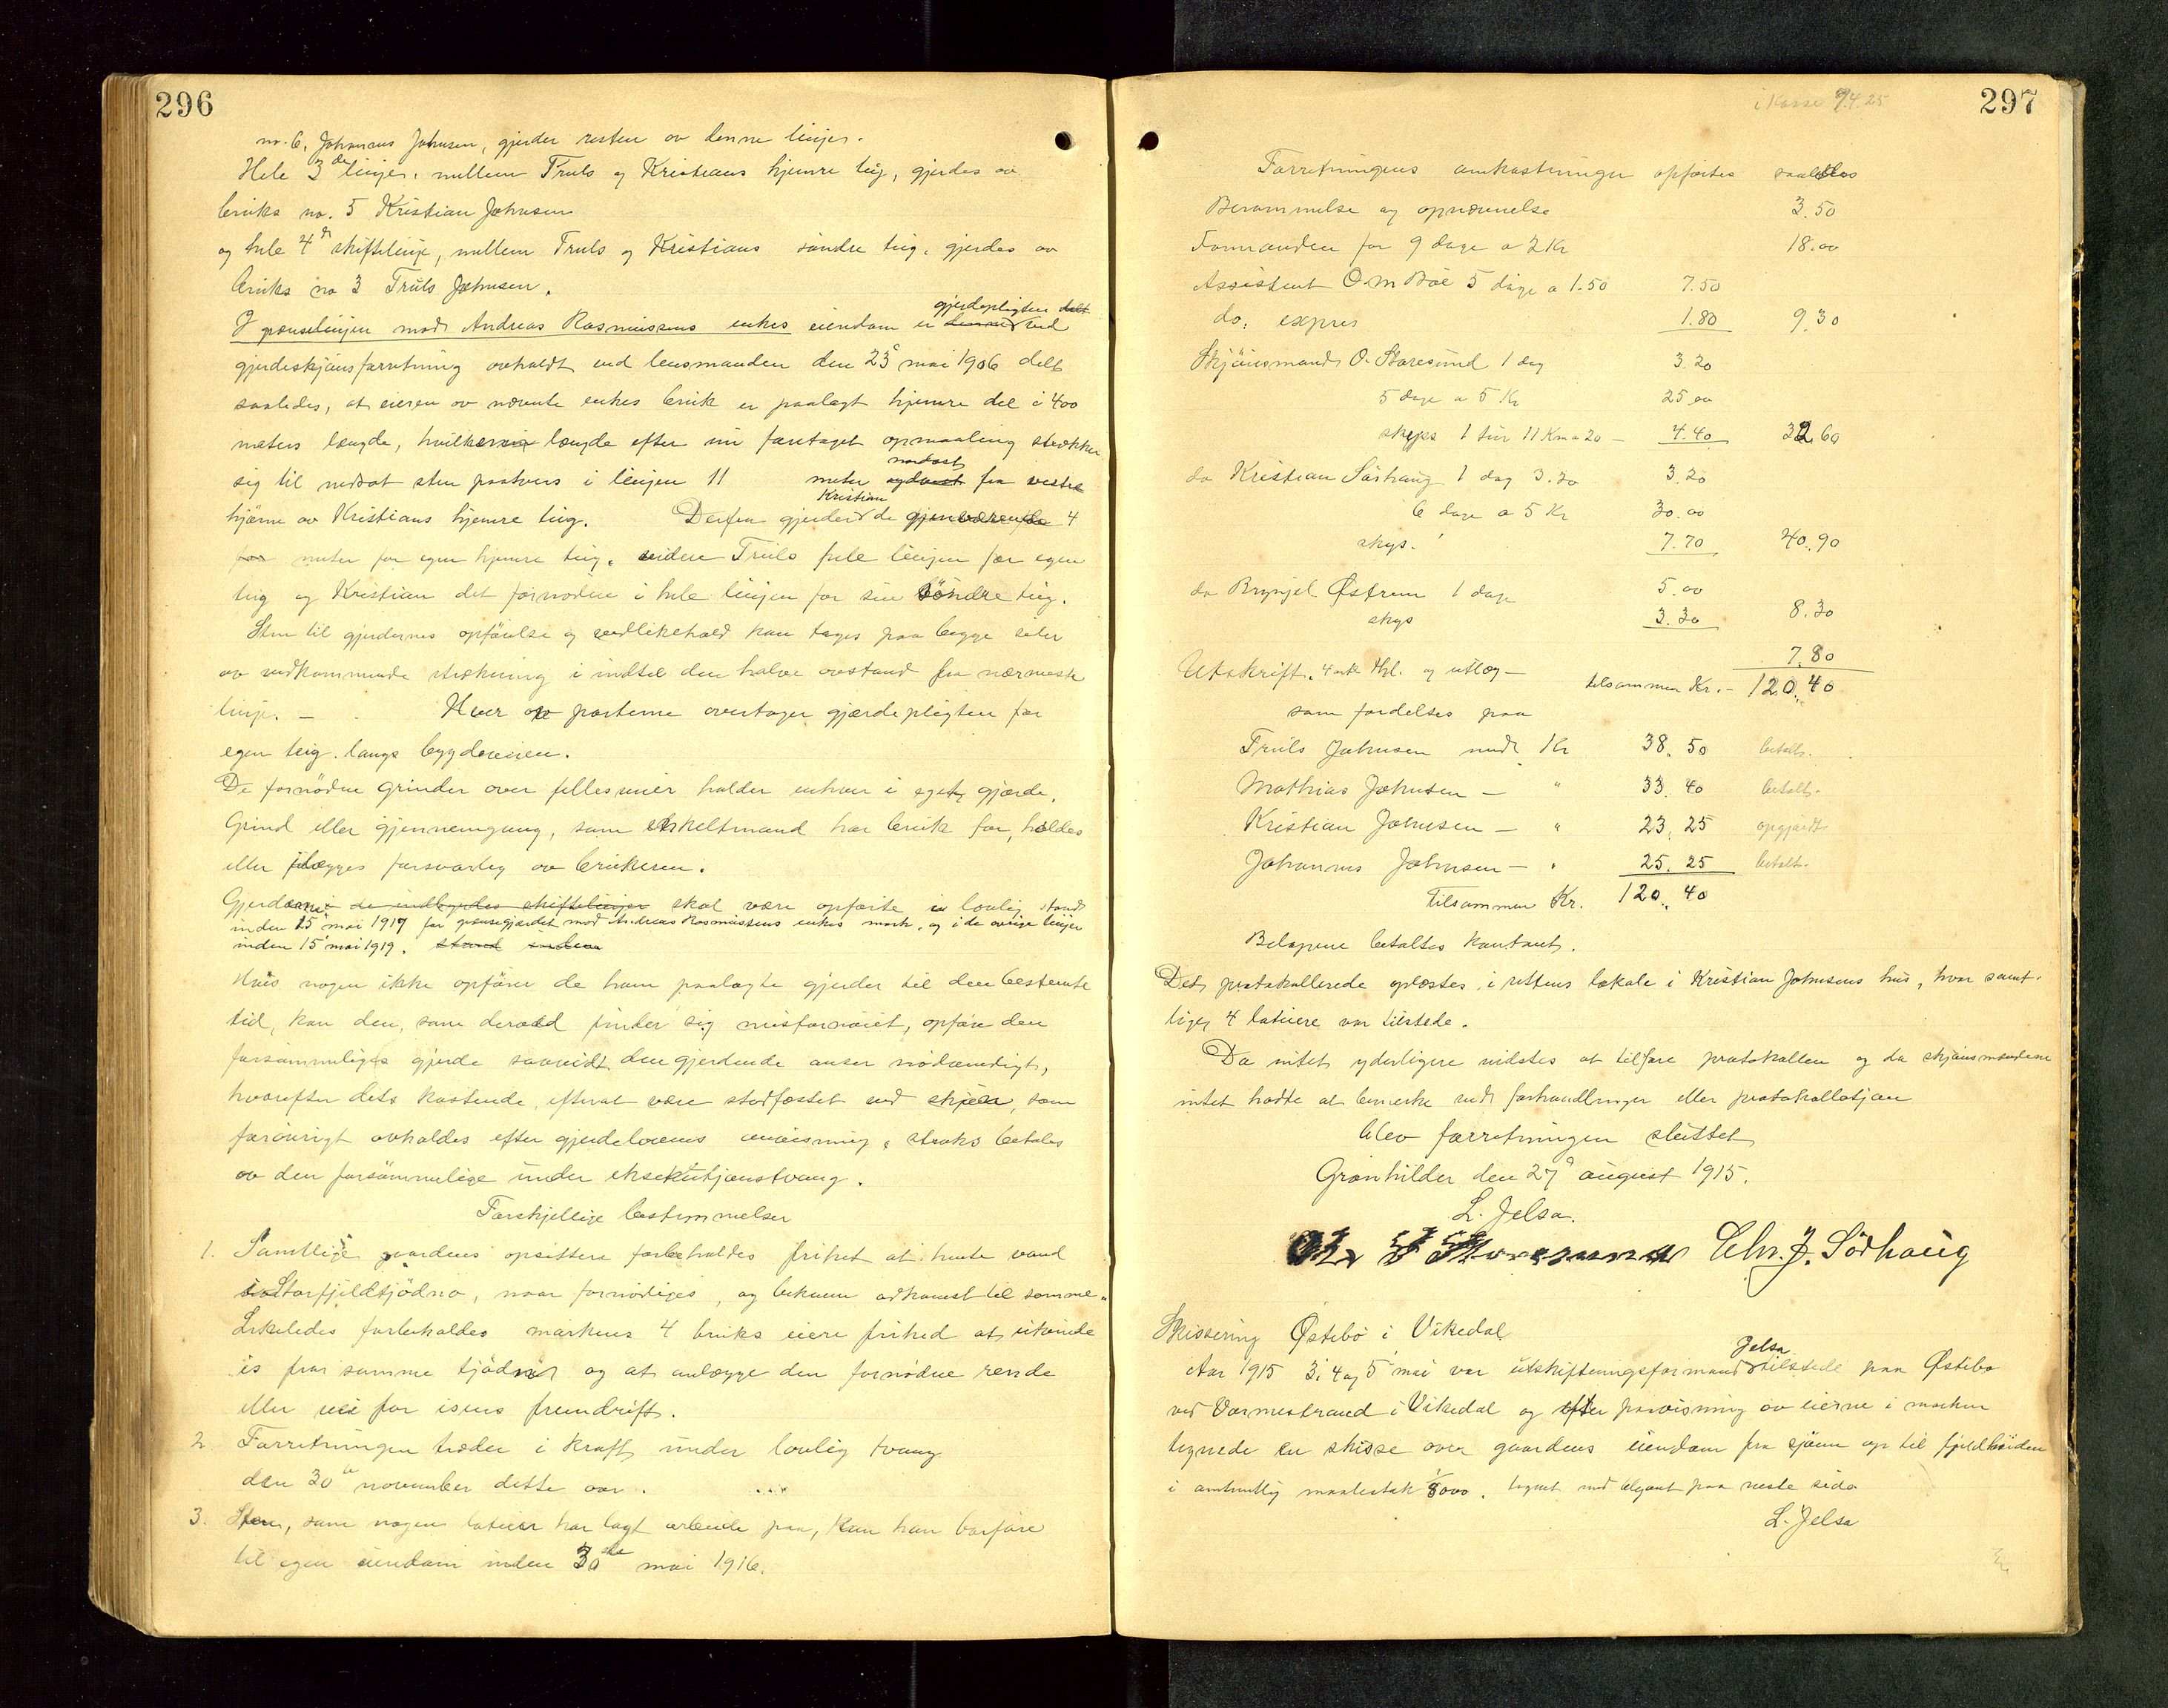 296
no. 6, Johannes Johnsen, gjerder resten av denne linje.
Hele 3de linje, mellem Truls og Kristians hjemre teig, gjerdes av
bruks no. 5 Kristian Johnsen
og hele 4de skiftelinje, mellem Truls og Kristians söndre teig, gjerdes av
bruks no 3 Truls Johnsen.
gjerdepligten delt
I grænselinjen mod Andreas Rasmussens enkes eiendom er ved
gjerdeskjønsforretning avholdt ved lensmanden den 23de mai 1906 delt
saaledes, at eieren av nævnte enkes bruk er paalagt hjemre del i 400
meters længde, hvilken længde efter nu foretaget opmaaling strækker
nordost
sig til nedsat sten paatvers i linjen 11 meter sydvest fra vestre
Kristian
hjörne av Kristians hjemre teig. Derfra gjerder de gjenværende 4
for meter for egen hjemre teig, videre Truls hele linjen for egen
teig og Kristian det fornødne i hele linjen for sin söndre teig.
Sten til gjerdernes opförelse og vedlikehold kan tages paa begge sider
av vedkommende strækning i indtil den halve avstand fra nærmeste
linje. — Hver av parterne overtager gjærdepligten for
egen teig langs bygdeveien.
De fornödne grinder over fellesveier holder enhver i eget gjærde.
Grind eller gjennemgang, som enkeltmand har bruk for, holdes
eller ilægges forsvarlig av brukeren.
Gjerderne i de indbyrdes skiftelinjer skal være opførte i lovlig stand
inden 15de mai 1917 for grænsegjærdet mod Andreas Rasmussens enkes mark, og i de øvrige linjer
inden 15de mai 1919. stand inden
Hvis nogen ikke opförer de ham paalagte gjerder til den bestemte
tid, kan den, som derved finder sig misfornøiet, opföre den
forsömmeliges gjerde saavidt den gjerdende anser nödvendigt,
hvorefter dets kostende, efterat være stadfæstet ved skjön, som
forövrigt avholdes efter gjerdelovens anvisning, straks betales
av den forsömmelige under eksekutjonstvang.
Forskjellige bestemmelser
1. Samtlige gaardens opsittere forbeholdes frihet at hente vand
i Storfjeldtjödno, naar fornödiges, og bekvem adkomst til samme.
Likeledes forbeholdes markens 4 bruks eiere frihed at utvinde
is fra samme tjödner og at anlægge den fornødne rende
eller vei for isens fremdrift.
2. Forretningen træder i kraft under lovlig tvang
den 30te november dette aar.
3. Sten, som nogen lateier har lagt arbeide paa, kan han bortføre
til egen eiendom inden 30te mai 1916.
297
i Kasse 9/4.25
Forretningens omkostninger opførtes saaledes
Berammelse og opnævnelse 3.50
Formanden for 9 dage a 2 Kr 18.00
Assistent O M Böe 5 dage a 1.50 7.50
do. expres 1.80 9.30
Skjönsmand O. Storesund 1 dag 3.20
5 dage a 5 Kr 25.00
skyds 1 tur 11 Km a 20 — 4.40 32.60
do Kristian Sörhaug 1 dag 3.20 3.20
6 dage a 5 Kr 30.00
skys. 7.70 40.90
do Brynjel Østrem 1 dage 5.00
skys 3.30 8.30
Utskrift, 4 ark thl. og utlæg — 7.80
tilsammen Kr. — 120.40
som fordeltes paa
Truls Johnsen med Kr 38.50 betalt.
Mathias Johnsen — " 33.40 betalt.
Kristian Johnsen — " 23.25 opgjordt
Johannes Johnsen — " 25.25 betalt.
Tilsammen Kr. 120.40
Beløpene betaltes kontant.
Det protokollerede oplæstes i rettens lokale i Kristian Johnsens hus, hvor samt-
lige 4 lateiere var tilstede.
Da intet yderligere vidstes at tilføre protokollen og da skjönsmændene
intet hadde at bemerke ved forhandlinger eller protokollatjon
blev forretningen sluttet
Grønhilder den 27de august 1915.
L. Jelsa.
Storesund Chr. J. Sörhaug
Skissering Østebö i Vikedal
Jelsa
Aar 1915 3, 4 og 5 mai var utskiftningsformand tilstede paa Østebø
ved Vormestrand i Vikedal og efter paavisning av eierne i marken
tegnede en skisse over gaardens eiendom fra sjöen op til fjeldhöiden
i omtrentlig maalestok 1/8000. tegnet med blyant paa neste side
L. Jelsa